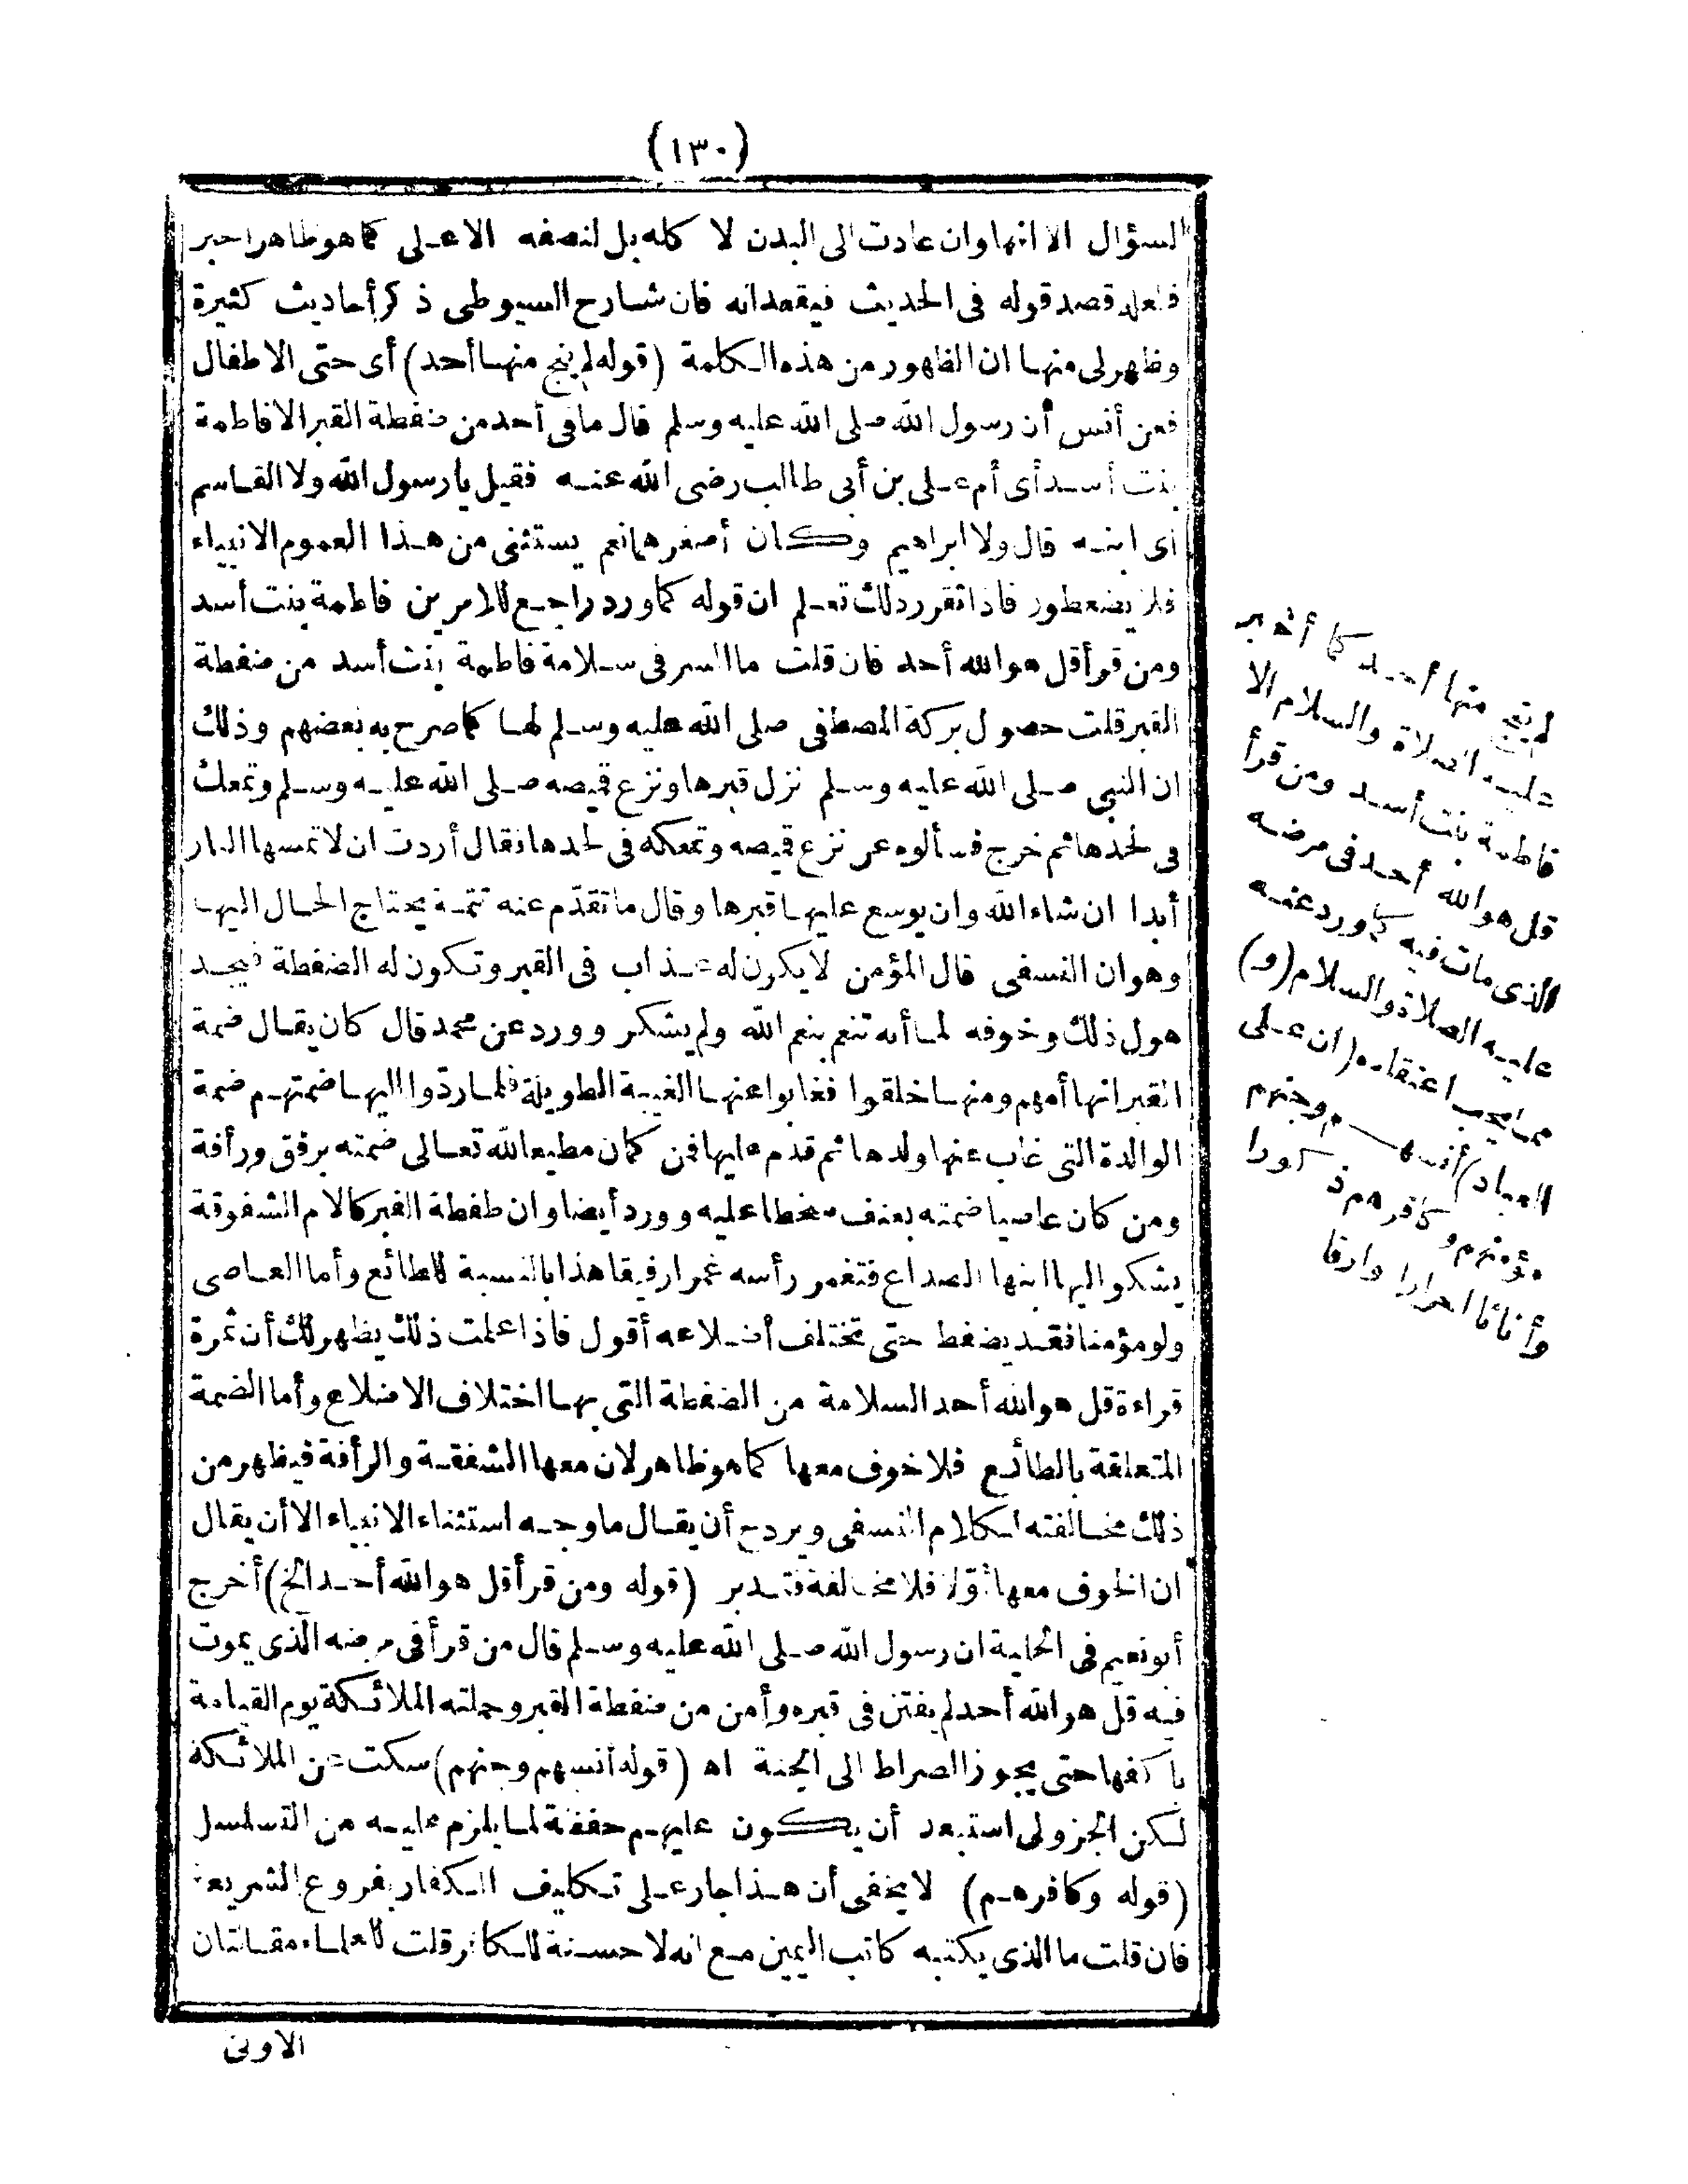 (١٣٠)
السؤال الا انها وان عادت الى البدن لا كله بل لنصفه الاعلى كما هو ظاهر خبر
فلعله قصد قوله فى الحديث فيقعدانه فان شارح السيوطى ذكر أحاديث كثيرة
وظهر لى منها ان الظهور من هذه الكلمة (قوله لم ينج منها أحد) أى حتى الاطفال
فعن أنس أن رسول الله صلى الله عليه وسلم قال ما فى أحد من ضغطة القبر الا فاطمة
بنت أسد أى أم على بن أبى طالب رضى الله عنه فقيل يا رسول الله ولا القاسم
أى ابنه قال ولا ابراهيم وكان أصغرهما نعم يستثنى من هذا العموم الانبياء
فلا يضغطون فاذا تقرر ذلك تعلم ان قوله كما ورد راجع للامرين فاطمة بنت أسد
ومن قرأ قل هو الله أحد فان قلت ما السر فى سلامة فاطمة بنت أسد من ضغطة
القبر قلت حصول بركة المصطفى صلى الله عليه وسلم لها كما صرح به بعضهم وذلك
ان النبى صلى الله عليه وسلم نزل قبرها ونزع قميصه صلى الله عليه وسلم وتمعك
فى لحدها ثم خرج فسألوه عن نزع قميصه وتمعكه فى لحدها فقال أردت ان لا تمسها النار
أبدا ان شاء الله وان يوسع عليها قبرها وقال ما تقدم عنه تتمة يحتاج الحال اليها
وهو ان النسفى قال المؤمن لا يكون له عذاب فى القبر وتكون له الضغطة فيجد
هول ذلك وخوفه لما أنه تنعم بنعم الله ولم يشكر وورد عن محمد قال كان يقال ضمة
القبر انها أمهم ومنها خلقوا فغابوا عنها الغيبة الطويلة فلما ردوا اليها ضمتهم ضمة
الوالدة التى غاب عنها ولدها ثم قدم عليها فمن كان مطيعا لله تعالى ضمته برفق ورأفة
ومن كان عاصيا ضمته بعنف سخطا عليه وورد أيضا وان ضغطة القبر كالام الشفوقة
يشكو اليها ابنها الصداع فتغمر رأسه غمرا رفيقا هذا بالنسبة للطائع وأما العاصى
ولو مؤمنا فقد يضغط حتى تختلف أضلاعه أقول فاذا علمت ذلك يظهر لك أن ثمرة
قراءة قل هو الله أحد السلامة من الضغطة التى بها اختلاف الاضلاع وأما الضمة
المتعلقة بالطائع فلا خوف معها كما هو ظاهر لان معها الشفقة والرأفة فيظهر من
ذلك مخالفته لكلام النسفى ويرد ح أن يقال ما وجه استثناء الانبياء الا أن يقال
ان الخوف معها أولا فلا مخالفة فتدبر (قوله ومن قرأ قل هو الله أحد الخ) أخرج
أبو نعيم فى الحلية ان رسول الله صلى الله عليه وسلم قال من قرأ فى مرضه الذى يموت
فيه قل هو الله أحد لم يفتن فى قبره وأمن من ضغطة القبر وحملته الملائكة يوم القيامة
بأكفها حتى يجوز الصراط الى الجنة اه (قوله أنسهم وجنهم) سكت عن الملائكة
لكن الجزولى استبعد أن يكون عليهم حفظة لما يلزم عليه من التسلسل
(قوله وكافرهم) لا يخفى أن هذا جار على تكليف الكفار بفروع الشريعة
فان قلت ما الذى يكتبه كاتب اليمين مع انه لا حسنة للكافر قلت للعلماء مقالتان
الاولى
لم ينج منها أحد كما أخبر
عليه الصلاة والسلام الا
فاطمة بنت أسد ومن قرأ
قل هو الله أحد فى مرضه
الذى مات فيه كما ورد عنه
عليه الصلاة والسلام (و)
مما يجب اعتقاده (ان على
العباد) أنسهم وجنهم
مؤمنهم وكافرهم ذكورا
وأناثا احرارا وارقا